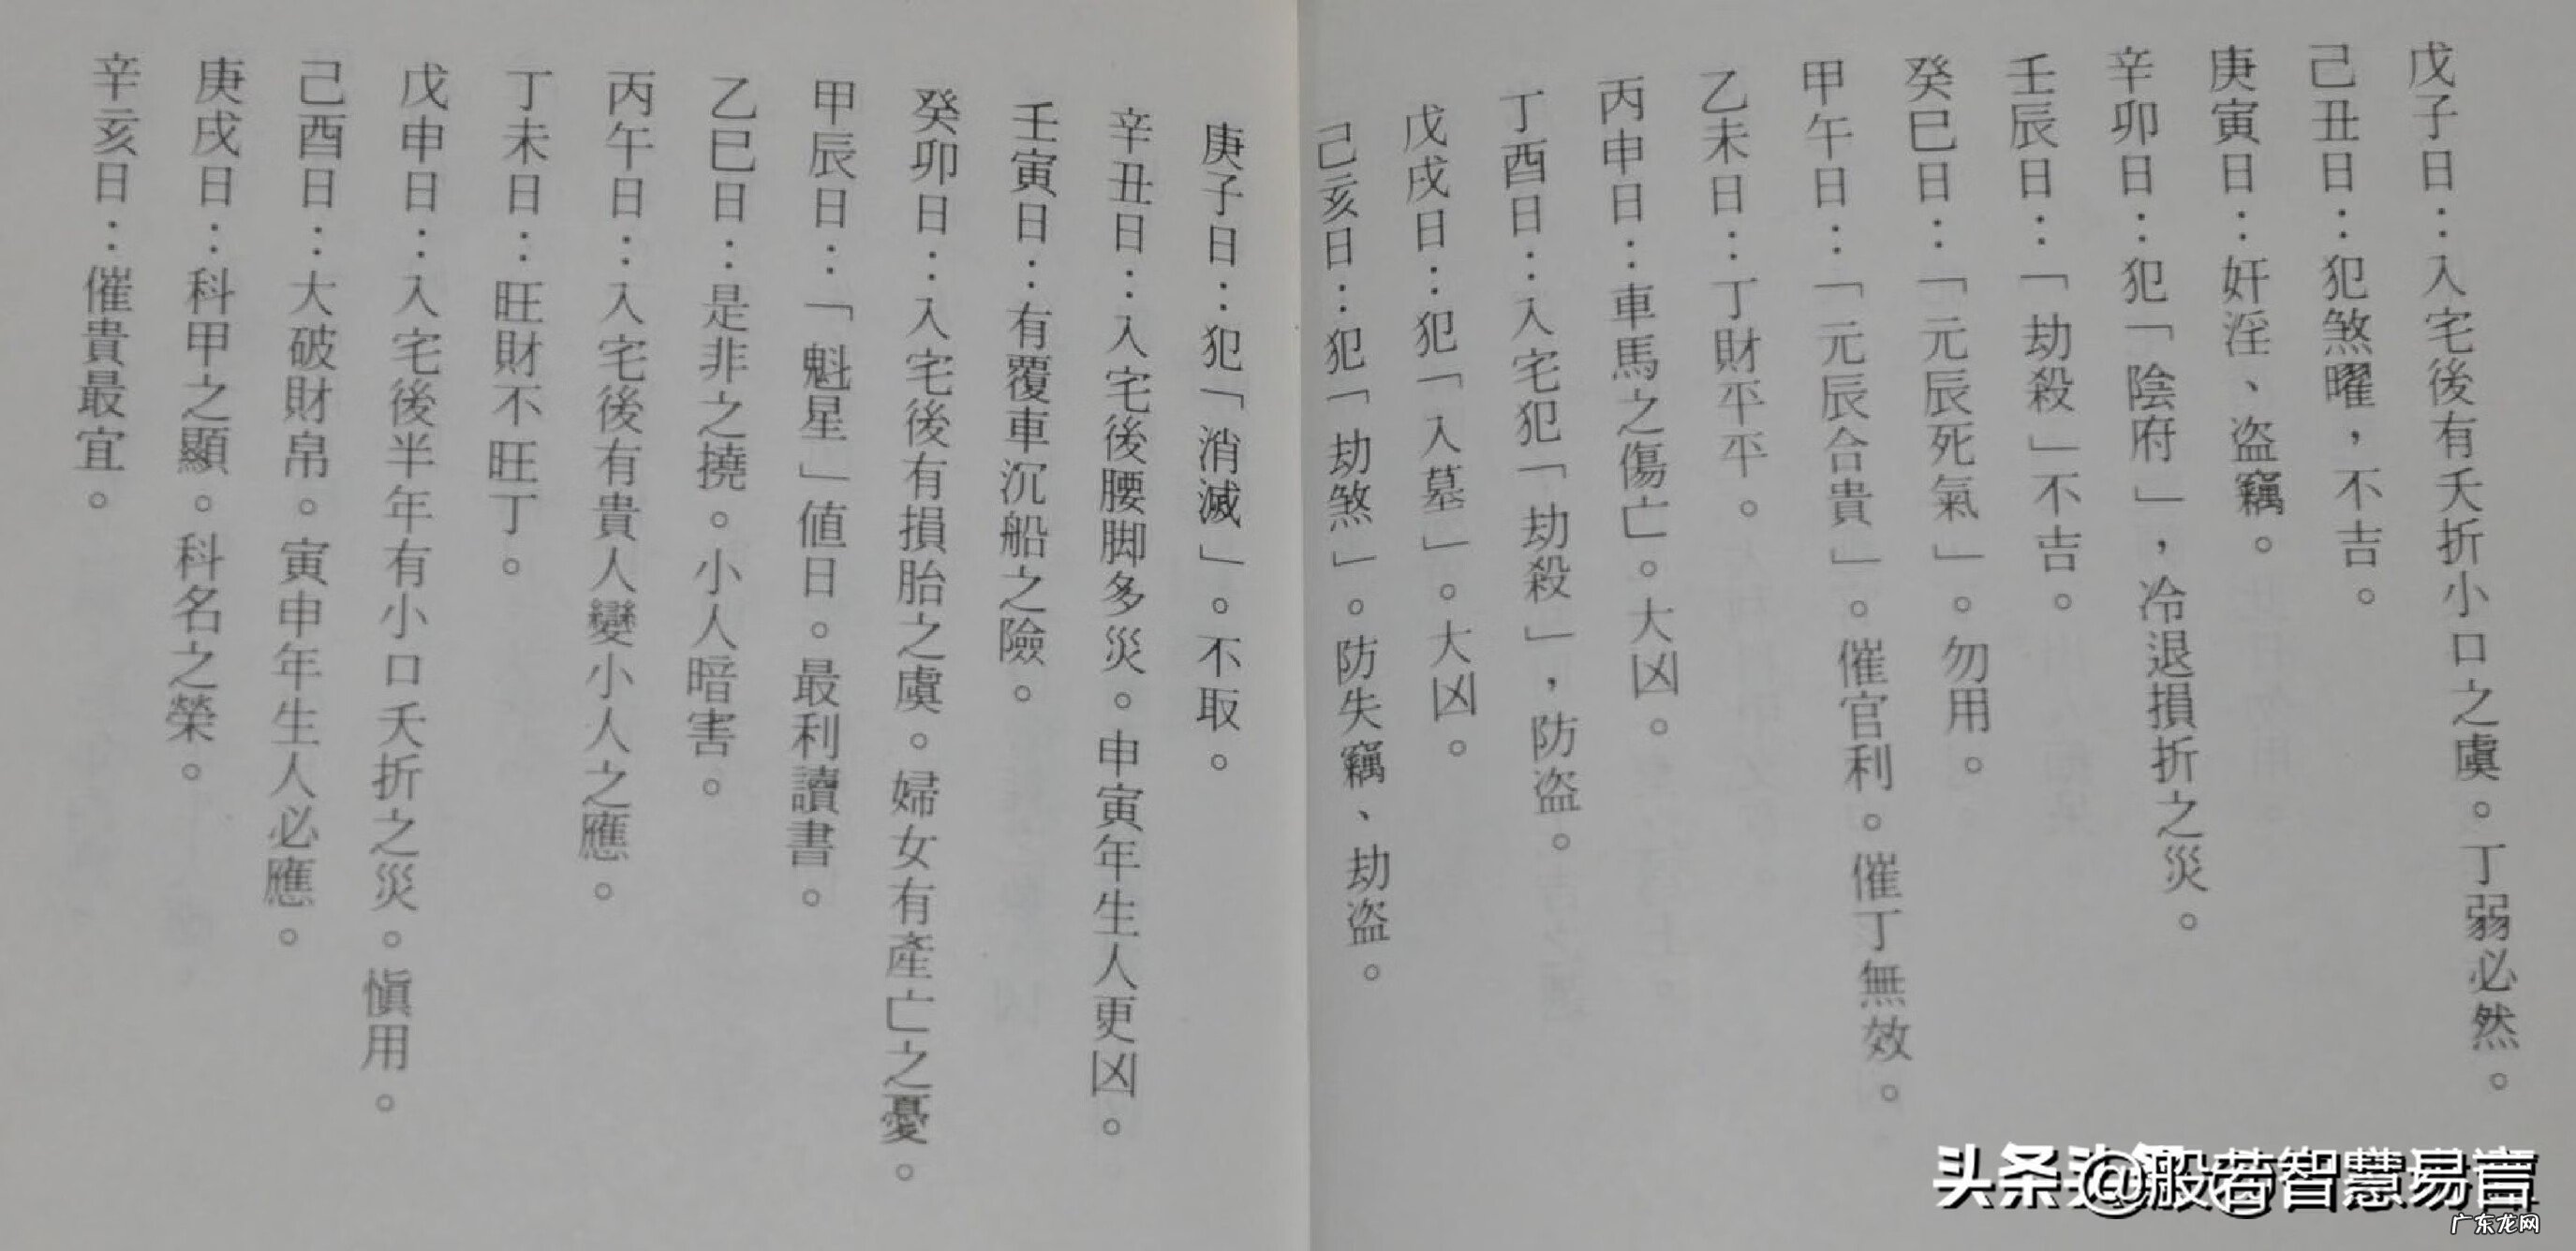 戊子日：入宅後有夭折小口之虞。丁弱必然。
己丑日：犯煞曜，不吉。
庚寅日：奸淫、盜竊。
辛卯日：犯「陰府」，冷退損折之災。
壬辰日：「劫殺」不吉。
癸巳日：「元辰死氣」。勿用。
甲午日：「元辰合貴」。催官利。催丁無效。
乙未日：丁財平平。
丙申日：車馬之傷亡。大凶。
丁酉日：入宅犯「劫殺」，防盜。
戊戌日：犯「入墓」。大凶。
己亥日：犯「劫煞」。防失竊、劫盜。
庚子日：犯「消滅」。不取。
辛丑日：入宅後腰脚多災。申寅年生人更凶。
壬寅日：有覆車沉船之險。
癸卯日：入宅後有損胎之虞。婦女有產亡之憂。
甲辰日：「魁星」值日。最利讀書。
乙巳日：是非之撓。小人暗害。
丙午日：入宅後有貴人變小人之應。
丁未日：旺財不旺丁。
戊申日：入宅後半年有小口夭折之災。慎用。
己酉日：大破財帛。寅申年生人必應。
庚戌日：科甲之顯。科名之榮。
辛亥日：催貴最宜。
头条 @般若智慧易言
广东龙网